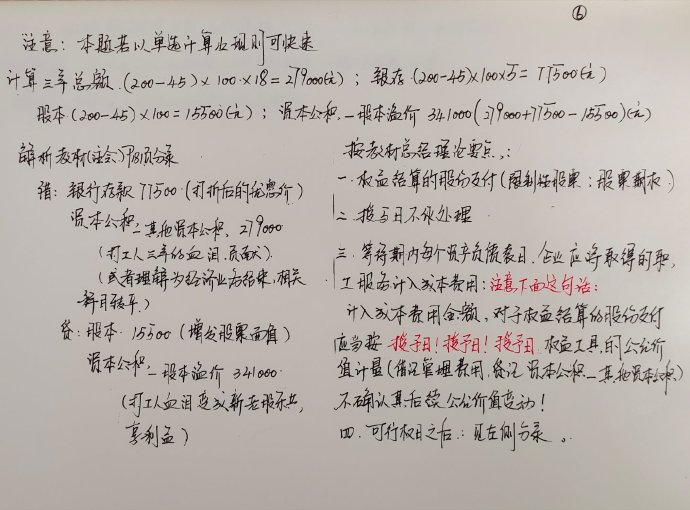 ⑥
注意：本题若以单选计算加规则可快速
计算三年总额 (200-45)×100×18=279000(元)；银存 (200-45)×100×5=77500(元)
股本 (200-45)×100=15500(元)；资本公积—股本溢价 341000(279000+77500-15500)(元)
解析教材(注会)P181页分录
借：银行存款 77500 (打折后的优惠价)
资本公积—其他资本公积 279000
(打工人三年的血泪
(或者理解为经济业务结束，相关
科目转平)
贷：股本 15500 (增发股票面值)
资本公积—股本溢价 341000
(打工人血泪变成新老股东共
享利益)
按教材总结理论要点：
一.权益结算的股份支付(限制性股票；股票期权)
二.授予日不做处理
三.等待期内每个资产负债表日，企业应将取得的职
工服务计入成本费用：注意下面这句话：
计入成本费用金额，对于权益结算的股份支付
应当按 授予日！授予日！授予日 权益工具的公允价
值计量(借记管理费用，贷记资本公积—其他资本公积)
不确认其后续公允价值变动！
四.可行权日之后：见左侧分录。